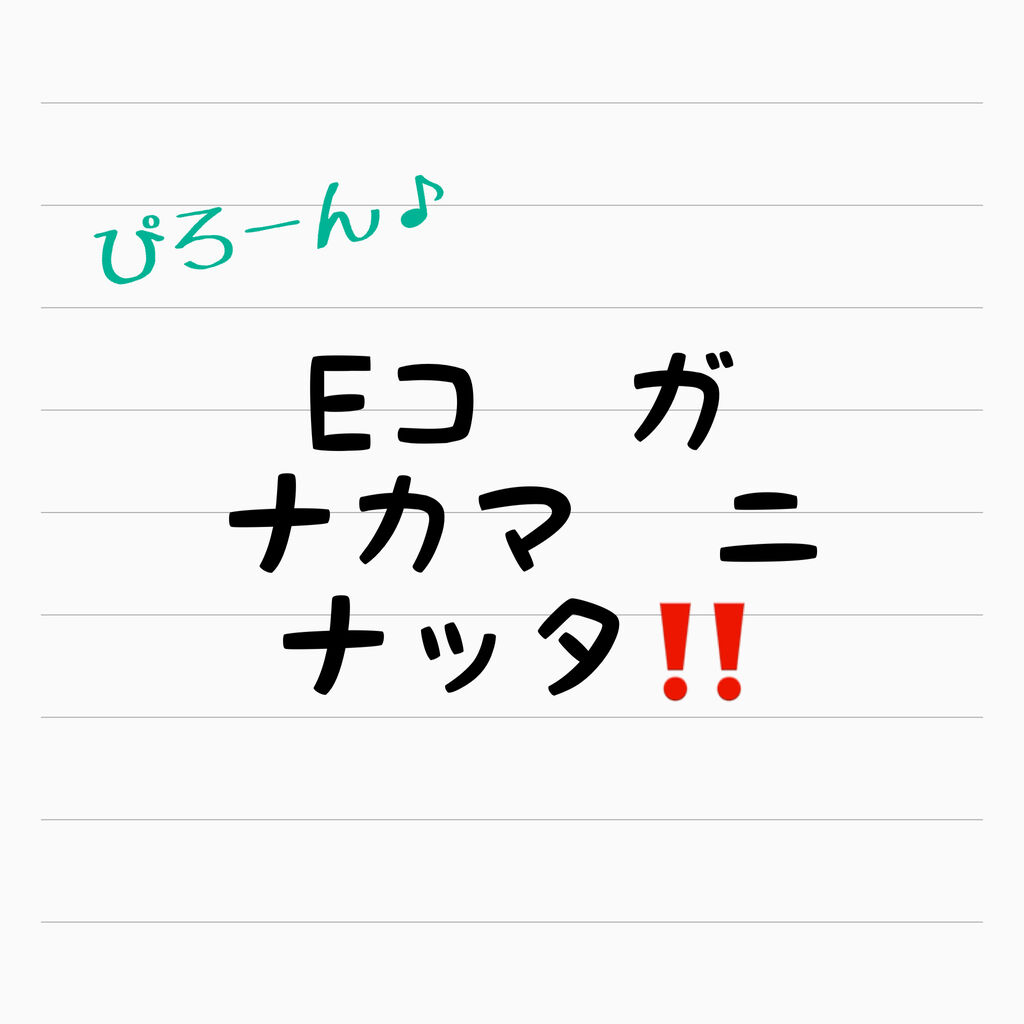 ぴろーん♪
Eコ　ガ
ナカマ　ニ
ナッタ‼️